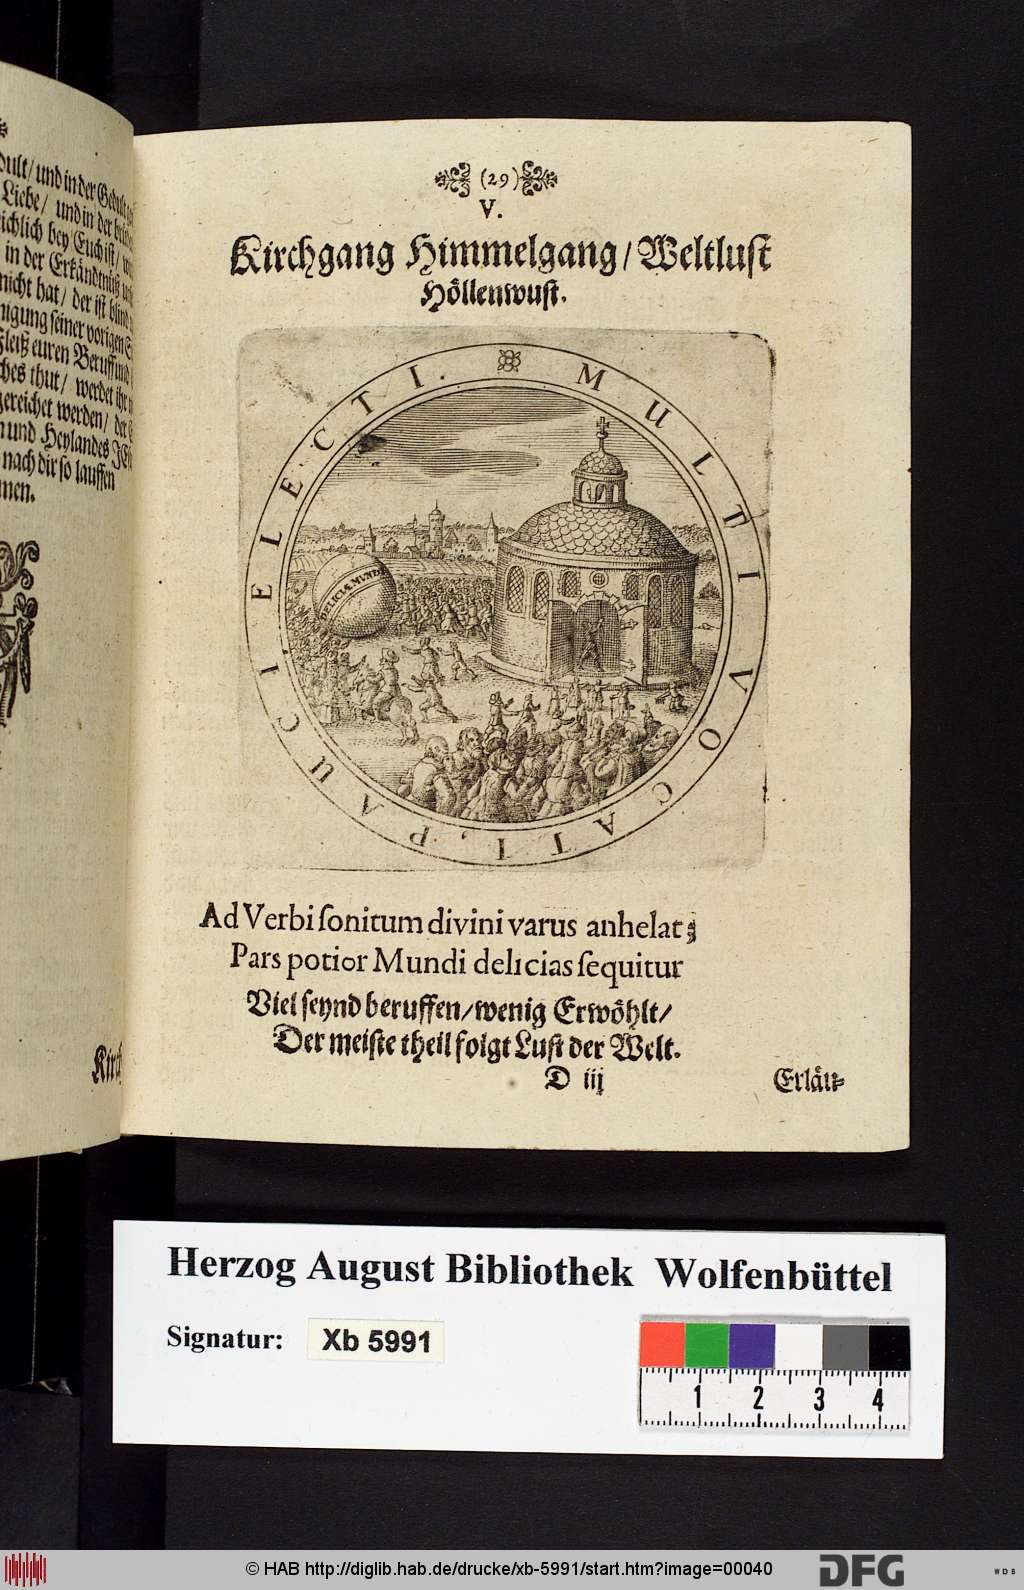 dult/ und in der Gedult
Liebe/ und in der
ichlich bey Euch ist/
in der Erkäntnüß
nicht hat/ der ist blind
nigung seiner vorigen
Fleiß euren Beruff und
ches thut/ werdet ihr
gereichet werden/ der
n und Heylandes
nach dir so lauffen
men.
Kirch
(29)
V.
Kirchgang Himmelgang/ Weltlust
Höllenwust.
MULTI VOCATI, PAUCI ELECTI.
DELICIÆ MUNDI
Ad Verbi ſonitum divini varus anhelat;
Pars potior Mundi delicias ſequitur
Viel ſeynd beruffen/ wenig Erwöhlt/
Der meiſte theil folgt Luſt der Welt.
D iij
Erläu-
Herzog August Bibliothek Wolfenbüttel
Signatur: Xb 5991
1 2 3 4
© HAB http://diglib.hab.de/drucke/xb-5991/start.htm?image=00040
DFG
WDB